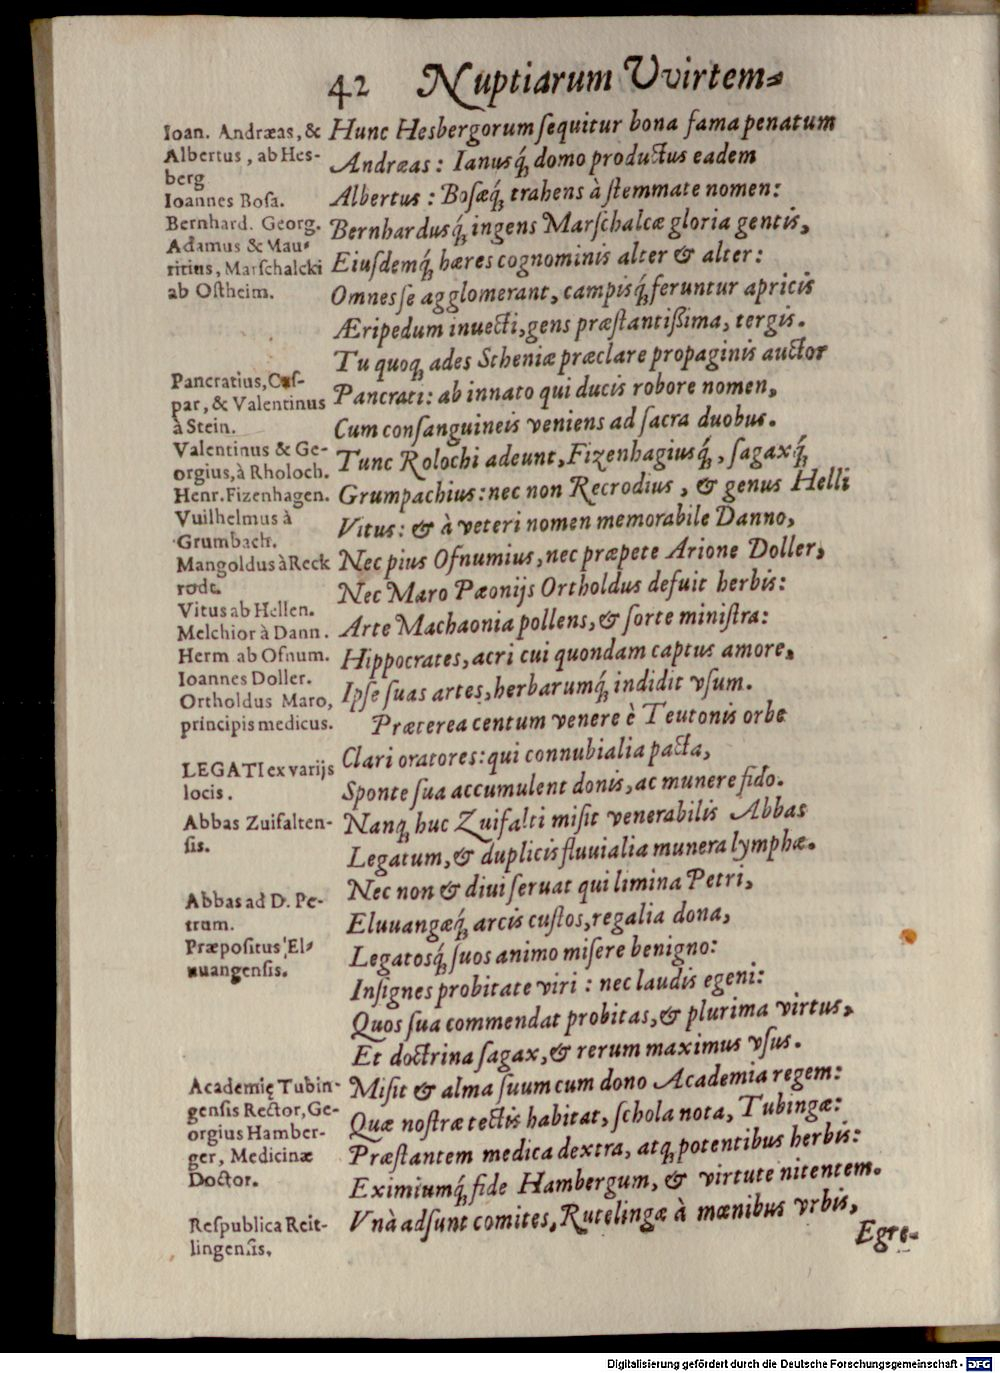 42 Nuptiarum Vvirtem-
Ioan. Andræas, &
Albertus, ab Hes-
berg
Ioannes Bosa.
Bernhard. Georg.
Adamus & Mau-
ritius, Marschalcki
ab Ostheim.
Pancratius, Cas-
par, & Valentinus
à Stein.
Valentinus & Ge-
orgius, à Rholoch.
Henr. Fizenhagen.
Vuilhelmus à
Grumbach.
Mangoldus à Reck
rodt.
Vitus ab Hellen.
Melchior à Dann.
Herm ab Ofnum.
Ioannes Doller.
Ortholdus Maro,
principis medicus.
LEGATI ex varijs
locis.
Abbas Zuifalten-
sis.
Abbas ad D. Pe-
trum.
Præpositus El-
uuangensis.
Academię Tubin-
gensis Rector, Ge-
orgius Hamber-
ger, Medicinæ
Doctor.
Respublica Reit-
lingensis.
Hunc Hesbergorum sequitur bona fama penatum
Andræas: Ianusq́; domo productus eadem
Albertus: Bosæq́; trahens à stemmate nomen:
Bernhardusq́; ingens Marschalcæ gloria gentis,
Eiusdemq́; hæres cognominis alter & alter:
Omnes se agglomerant, campisq́; feruntur apricis
Æripedum inuecti, gens præstantißima, tergis.
Tu quoq; ades Stheniæ præclare propaginis auctor
Pancrati: ab innato qui ducis robore nomen,
Cum consanguineis veniens ad sacra duobus.
Tunc Rolochi adeunt, Fizenhagiusq́;, sagaxq́;
Grumpachius: nec non Recrodius, & genus Helli
Vitus: & à veteri nomen memorabile Danno,
Nec pius Ofnumius, nec præpete Arione Doller,
Nec Maro Pæonijs Ortholdus defuit herbis:
Arte Machaonia pollens, & sorte ministra:
Hippocrates, acri cui quondam captus amore,
Ipse suas artes, herbarumq́; indidit vsum.
Præterea centum venere è Teutonis orbe
Clari oratores: qui connubialia pacta,
Sponte sua accumulent donis, ac munere fido.
Nanq; huc Zuifalti misit venerabilis Abbas
Legatum, & duplicis fluuialia munera lymphæ.
Nec non & diui seruat qui limina Petri,
Eluuangæq́; arcis custos, regalia dona,
Legatosq́; suos animo misere benigno:
Insignes probitate viri: nec laudis egeni:
Quos sua commendat probitas, & plurima virtus,
Et doctrina sagax, & rerum maximus vsus.
Misit & alma suum cum dono Academia regem:
Quæ nostræ tectis habitat, schola nota, Tubingæ:
Præstantem medica dextra, atq; potentibus herbis:
Eximiumq́; fide Hambergum, & virtute nitentem.
Vnà adsunt comites, Rutelingæ à mœnibus vrbis,
Egre-
Digitalisierung gefördert durch die Deutsche Forschungsgemeinschaft - DFG